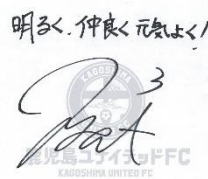 明るく、仲良く元気よく!
3
KAGOSHIMA
鹿児島ユナイテッドFC
KAGOSHIMA UNITED FC